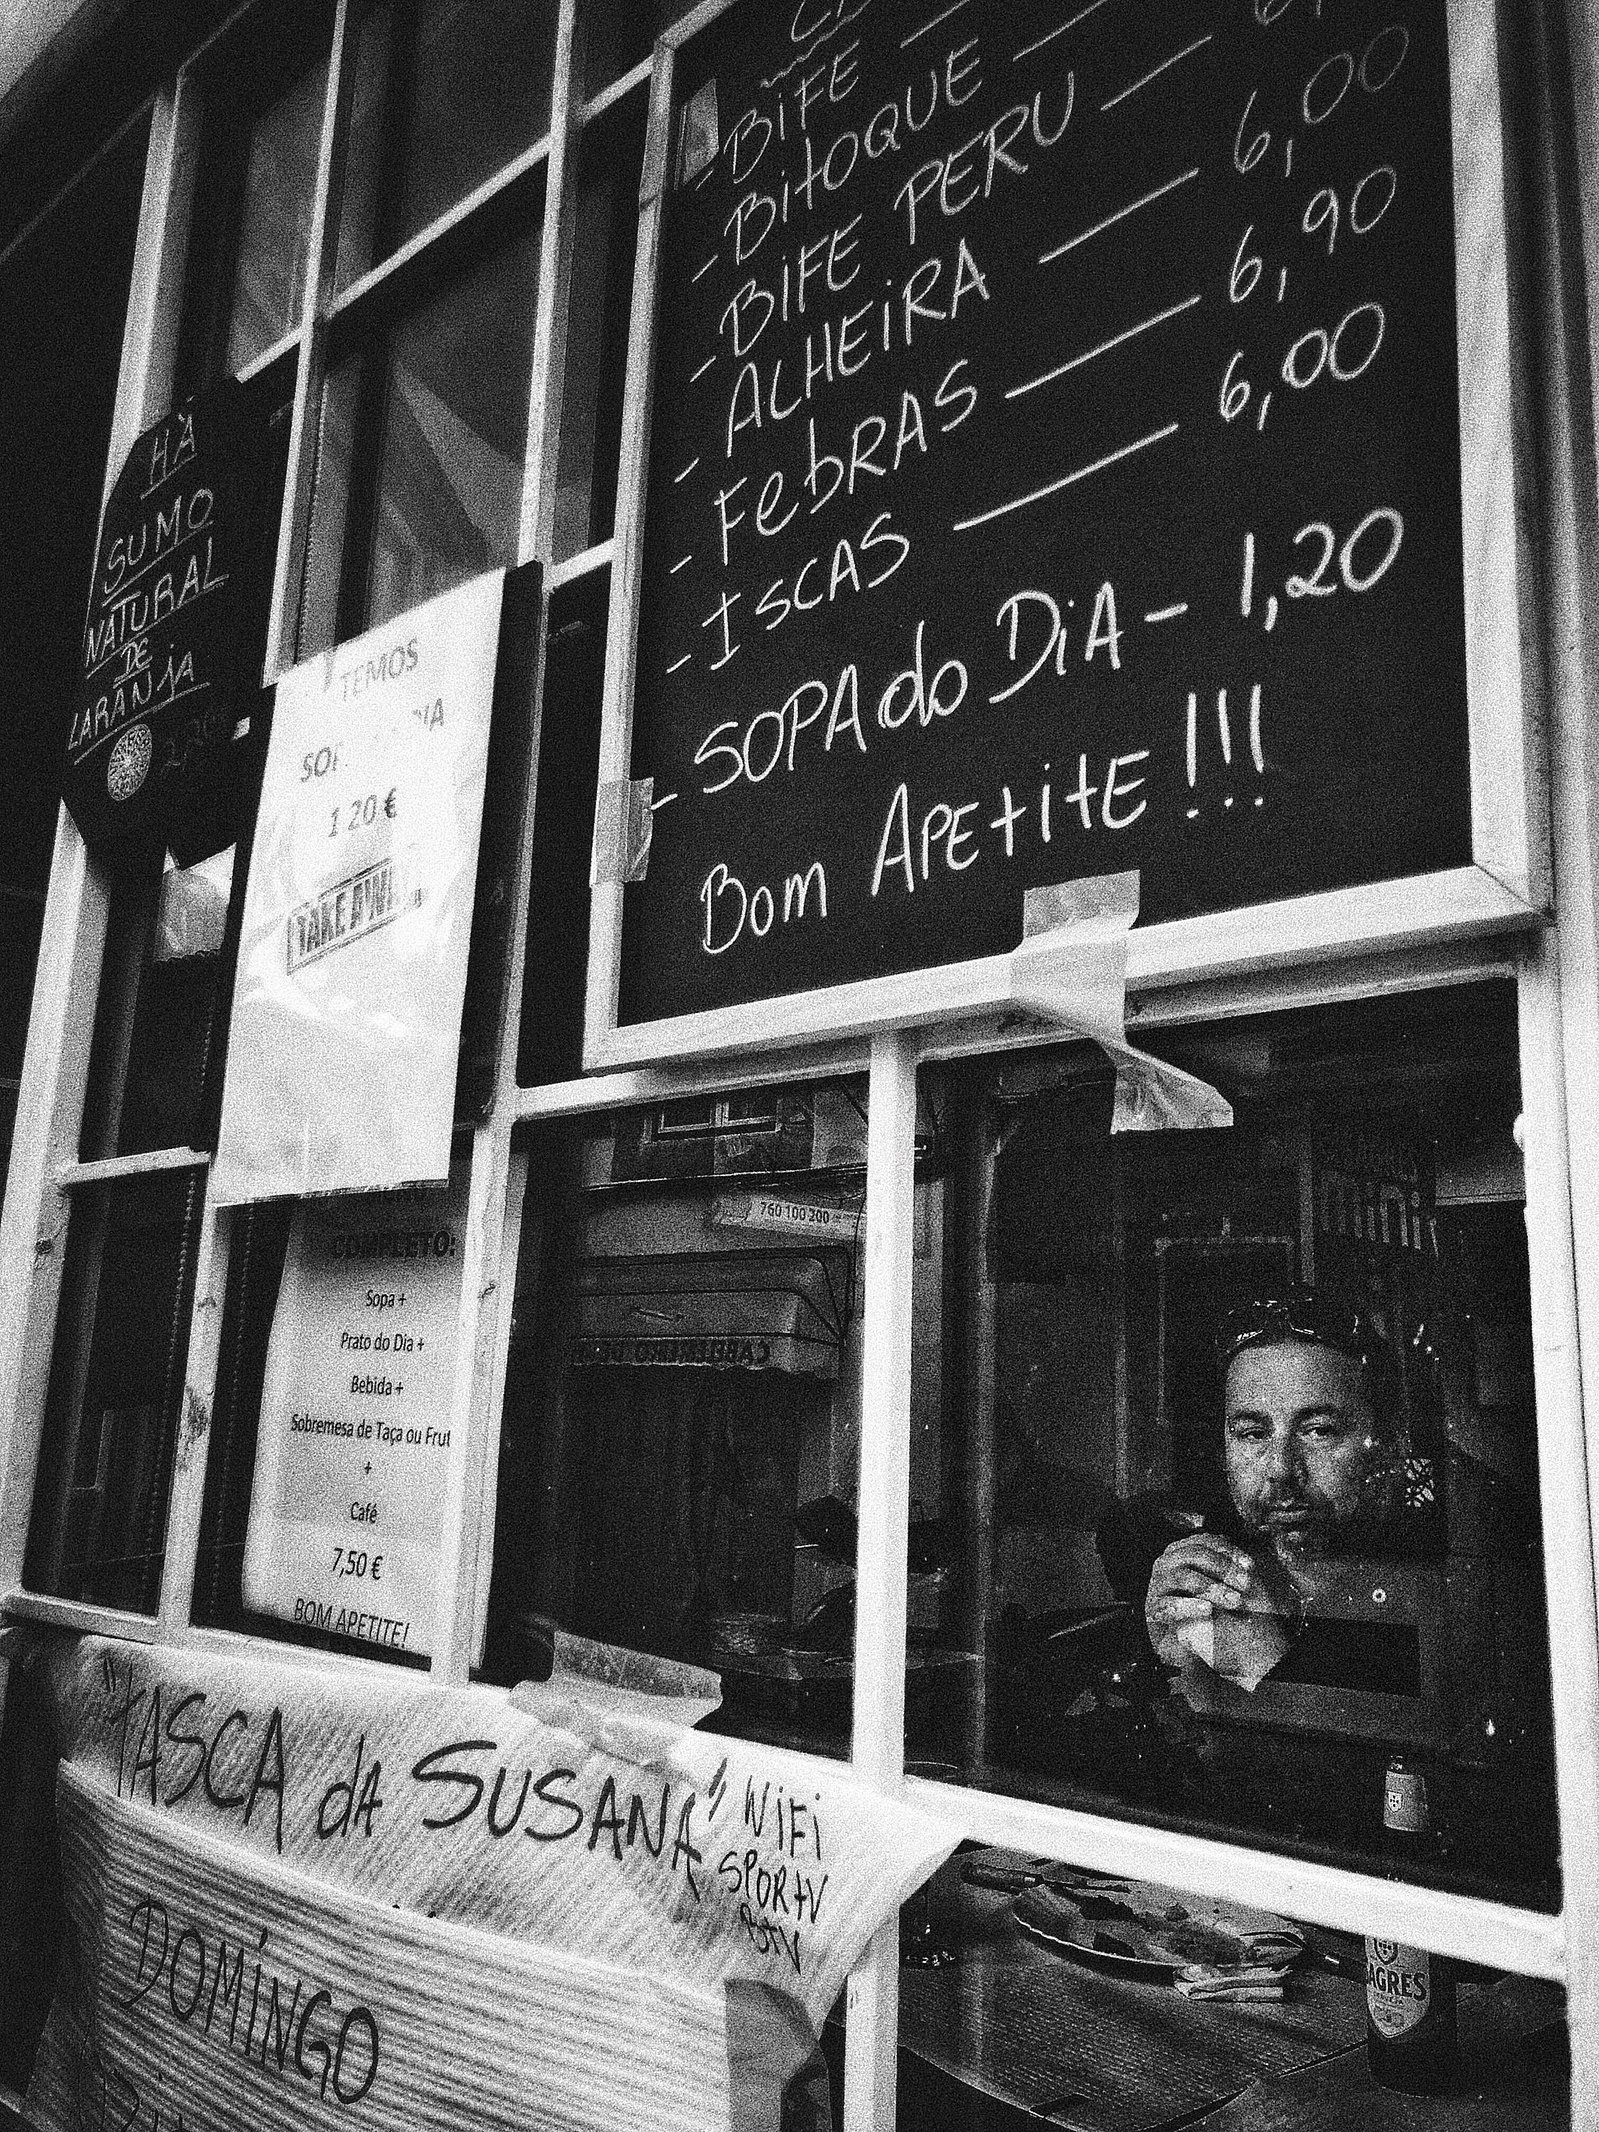 - BIFE
- BitOQUE
- BIFE PERU
- ALHEiRA — 6,00
- FebRAS — 6,90
- IsCAS — 6,00
- SOPA do DiA - 1,20
Bom APEtitE!!!
HÀ
SUMO
NATURAL
DE
LARANJA
TEMOS
1 20 €
COMPLETO:
Sopa +
Prato do Dia +
Bebida +
Sobremesa de Taça ou Frut
+
Café
7,50 €
BOM APETITE!
760 100 200
mini
"tASCA dA SUSANA" WiFi
SPORtV
DOMiNGO
AGRES